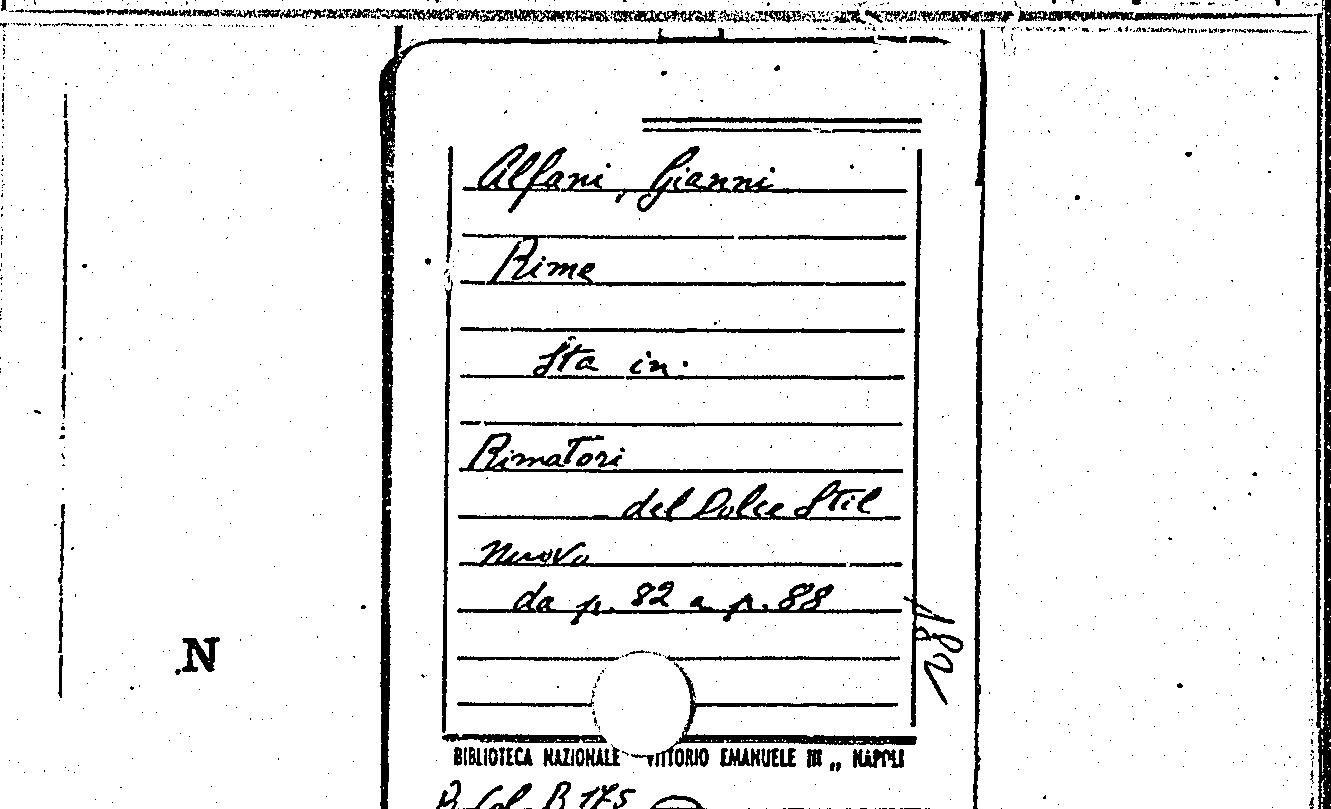 Alfani, Gianni
Rime
Sta in:
Rimatori
del Dolce Stil
nuovo
da p. 82 a p. 88
N
BIBLIOTECA NAZIONALE VITTORIO EMANUELE III „ NAPOLI
B 175